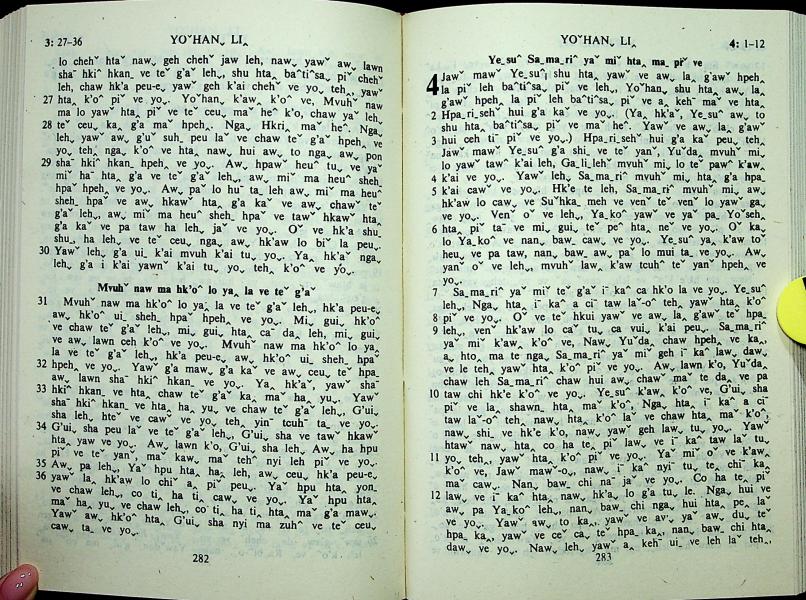 3: 27-36
YO˅HAN˯ LI‸
lo cheh˅ hta˅ naw˯ geh cheh˅ jaw leh, naw˯ yaw˅ aw˯ lawn
sha¯ hki^ hkan_ ve te˅ g'a˅ leh˯, shu hta‸ ba^ti^sa‸ pi˅ cheh˅
leh, chaw hk'a peu-e˯ yaw˅ geh k'ai cheh˅ ve yo˯ teh‸ yaw˅
27 hta‸ k'o^ pi˅ ve yo˯. Yo˅han‸ k'aw‸ k'o^ ve, Mvuh˅ naw
ma lo yaw˅ hta‸ pi˅ ve te˅ ceu‸ ma˅ he^ k'o, chaw ya˅ leh‸
28 te˅ ceu‸ ka‸ g'a ma˅ hpeh˯. Nga‸ Hkri‸ ma˅ he^. Nga‸
leh, yaw˅ aw˯ g'u˅ suh‸ peu la˅ ve chaw te˅ g'a˅ hpeh‸ ve
yo‸ teh‸ nga‸ k'o^ ve hta‸ naw‸ hui aw‸ to nga‸ aw˯ pon
29 sha¯ hki^ hkan‸ hpeh ve yo˯. Aw‸ hpaw˅ heu˅ tu‸ ve ya˅
mi˅ ha¯ hta‸ g'a ve te˅ g'a˅ leh‸, aw˯ mi˅ ma heu˅ sheh_
hpa˅ hpeh˅ ve yo˯. Aw‸ pa˅ lo hu¯ ta‸ leh aw‸ mi˅ ma heu˅
sheh_ hpa˅ ve aw˯ hkaw˅ hta‸ g'a ka˅ ve aw˯ chaw˅ te˅
g'a˅ leh˯, aw‸ mi˅ ma heu^ sheh_ hpa˅ ve taw˅ hkaw˅ hta‸
g'a ka˅ ve pa taw ha leh‸ ja˅ ve yo˯. O˅ ve hk'a shu_
shu_ ha leh ve te˅ ceu‸ nga‸ aw˯ hk'aw lo bi˅ la peu˯.
30 Yaw˅ leh˯ g'a ui_ k'ai mvuh k'ai tu‸ yo˯. Ya‸ hk'a˅ nga‸
leh‸ g'a i k'ai yawn˅ k'ai tu‸ yo‸ teh‸ k'o^ ve yo˯.
Mvuh˅ naw ma hk'o^ lo ya‸ la ve te˅ g'a˅
31 Mvuh˅ naw ma hk'o^ lo ya‸ la ve te˅ g'a˅ leh˯, hk'a peu-e‸
aw˯ hk'o^ ui_ sheh_ hpa˅ hpeh‸ ve yo˯. Mi‸ gui‸ hk'o^
ve chaw te˅ g'a˅ leh, mi‸ gui‸ hta‸ ca˅ da‸ leh, mi‸ gui‸
ve aw˯ lawn ceh k'o^ ve yo˯. Mvuh˅ naw ma hk'o^ lo ya‸
la ve te˅ g'a˅ leh˯, hk'a peu-e‸ aw˯ hk'o^ ui_ sheh_ hpa˅
32 hpeh ve yo˯. Yaw˅ g'a maw‸ g'a ka˅ ve aw˯ ceu‸ te˅ hpa‸
aw˯ lawn sha¯ hki^ hkan_ ve yo˯. Ya‸ hk'a˅, yaw˅ sha¯
33 hki^ hkan_ ve hta‸ chaw te˅ g'a˅ ka‸ ma˅ ha‸ yu‸. Yaw˅
sha¯ hki^ hkan_ ve hta‸ ha‸ yu‸ ve chaw te˅ g'a˅ leh‸, G'ui‸
sha leh‸ hte˅ ve caw˅ ve yo‸ teh‸ yin¯ tcuh¯ ta_ ve yo˯.
34 G'ui‸ sha peu la˅ ve te˅ g'a˅ leh˯, G'ui‸ sha ve taw˅ hkaw˅
hta‸ yaw˅ ve yo˯. Aw‸ lawn k'o, G'ui‸ sha leh‸ Aw‸ ha hpu
pi˅ ve te˅ yan˅, ma˅ kaw‸ ma˅ teh^ nyi leh pi˅ ve yo˯.
35 Aw˯ pa leh‸, Ya˅ hpu hta‸ ha‸ leh, aw˯ ceu‸ hk'a peu-e‸
36 yaw˅ la‸ hk'aw lo chi^ a‸ pi˅ peu˯. Ya˅ hpu hta‸ yon_
ve chaw˅ leh‸, co ti‸ ha ti‸ caw˅ ve yo˯. Ya˅ hpu hta‸
ma˅ ha‸ yu‸ ve chaw˅ leh‸, co ti‸ ha ti‸ hta‸ ma˅ g'a maw˯.
Yaw˅ aw˯ hk'o^ hta‸ G'ui‸ sha nyi ma zuh^ ve te˅ ceu‸
caw‸ ta_ ve yo˯.
282
YO˅HAN˯ LI‸
4: 1-12
Ye_su^ Sa_ma_ri^ ya˅ mi˅ hta‸ ma‸ pi˅ ve
4 Jaw˅ maw˅ Ye_su^ shu hta‸ yaw˅ ve aw˯ la‸ g'aw˅ hpeh‸
la pi˅ leh ba^ti^sa‸ pi˅ ve leh˯, Yo˅han‸ shu hta‸ aw˯ la‸
g'aw˅ hpeh‸ la pi˅ leh ba^ti^sa‸ pi˅ ve a‸ keh¯ ma˅ ve hta‸
2 Hpa_ri_seh˅ hui g'a ka˅ ve yo˯. (Ya‸ hk'a˅, Ye_su^ aw˯ to
shu hta‸ ba^ti^sa‸ pi˅ ve ma˅ he^. Yaw˅ ve aw˯ la‸ g'aw˅
3 hui ceh ti¯ pi˅ ve yo˯.) Hpa_ri_seh˅ hui g'a ka˅ peu‸ teh‸
Jaw˅ maw˅ Ye_su^ g'a shi‸ ve te˅ yan˅, Yu˅da‸ mvuh˅ mi‸
lo yaw˅ taw˅ k'ai leh, Ga_li_leh˅ mvuh˅ mi‸ lo te˅ paw˅ k'aw‸
4 k'ai ve yo˯. Yaw˅ leh‸ Sa_ma_ri^ mvuh˅ mi‸ hta‸ g'a hpa_
5 k'ai caw˅ ve yo˯. Hk'e te leh, Sa_ma_ri^ mvuh˅ mi‸ aw˯
hk'aw lo caw˯ ve Su˅hka_ meh ve ven˅ te˅ ven˅ lo yaw˅ ga‸
ve yo˯. Ven˅ o˅ ve leh˯, Ya_ko˅ yaw˅ ve ya˅ pa‸ Yo˅seh‸
6 hta‸ pi˅ ta¯ ve mi‸ gui‸ te˅ pe^ hta‸ ne˅ ve yo˯. O˅ ka‸
lo Ya_ko^ ve nan‸ baw_ caw‸ ve yo˯. Ye_su^ ya‸ k'aw to˅
heu‸ ve pa taw, nan‸ baw_ aw˯ pa˅ lo mui ta_ ve yo˯. Aw‸
yan˅ o˅ ve leh˯, mvuh˅ law‸ k'aw tcuh^ te˅ yan˅ hpeh‸ ve
yo˯.
7 Sa_ma_ri^ ya˅ mi˅ te˅ g'a˅ i¯ ka^ ca hk'o la ve yo˯. Ye_su^
leh˯, Nga‸ hta‸ i¯ ka^ a ci^ taw la˅-o^ teh‸ yaw˅ hta‸ k'o^
8 pi˅ ve yo˯. O˅ ve te˅ hkui yaw˅ ve aw˯ la‸ g'aw˅ te˅ hpa‸
9 leh˯, ven˅ hk'aw lo ca˅ tu‸ ca vui‸ k'ai peu˯. Sa_ma_ri^
ya˅ mi˅ k'aw‸ k'o^ ve, Naw‸ Yu˅da‸ chaw hpeh‸ ve ka‸,
a‸ hto‸ ma te nga‸ Sa_ma_ri^ ya˅ mi˅ geh i¯ ka^ law˅ daw˯
ve le teh‸ yaw˅ hta‸ k'o^ pi˅ ve yo˯. Aw‸ lawn k'o, Yu˅da‸
chaw leh Sa_ma_ri^ chaw hui aw˯ chaw˅ ma˅ te da‸ ve pa
10 taw chi hk'e k'o^ ve yo˯. Ye_su^ k'aw‸ k'o^ ve, G'ui‸ sha
pi˅ ve la‸ shawn_ hta‸ ma˅ k'o^, Nga‸ hta‸ i¯ ka^ a ci^
taw la˅-o^ teh‸ naw‸ hta‸ k'o^ la˅ ve chaw hta‸ ma˅ k'o^,
naw‸ shi_ ve hk'e k'o, naw‸ yaw˅ geh law˅ tu‸ yo˯. Yaw˅
htaw˅ naw‸ hta‸ co ha te‸ pi˅ law˅ ve i¯ ka^ taw la˅ tu‸
11 yo‸ teh‸ yaw˅ hta‸ k'o^ pi˅ ve yo˯. Ya˅ mi˅ o˅ ve k'aw‸
k'o^ ve, Jaw˅ maw˅-o‸, naw‸ i¯ ka^ nyi˅ tu‸ te‸ chi˅ ka‸
ma˅ caw˯. Nan‸ baw_ chi na˅ ja˅ ve yo˯. Co ha te‸ pi˅
12 law˅ ve i¯ ka^ hta‸ naw‸ hk'a‸ lo g'a tu‸ le. Nga‸ hui ve
aw˯ pa Ya_ko^ leh‸, nan‸ baw_ chi nga‸ hui hta‸ pe‸ la˅
ve yo˯. Yaw˅ aw˯ to ka‸, yaw˅ ve av˅ ya˅ aw˯ du‸ te˅
hpa_ ka‸, yaw˅ ve ce˅ ca‸ te˅ hpa_ ka‸, nan‸ baw_ chi hta‸
daw‸ ve yo˯. Naw‸ leh‸ yaw˅ a‸ keh¯ ui_ ve leh la˅ teh‸,
283